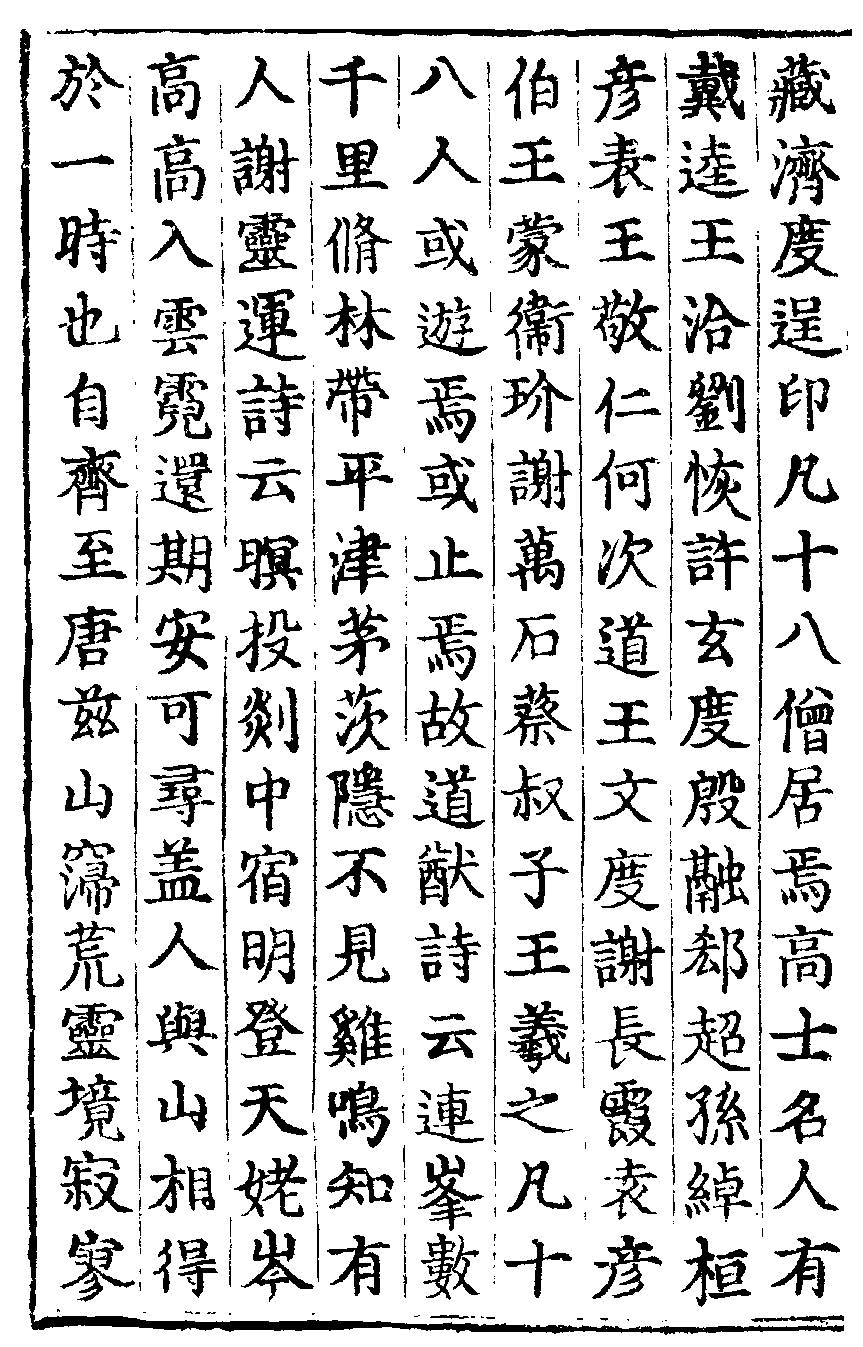 藏濟度逞印凡十八僧居焉高士名人有
戴逵王洽劉恢許玄度殷融郄超孫綽桓
彦表王敬仁何次道王文度謝長霞袁彦
伯王蒙衞玠謝萬石蔡叔子王羲之凡十
八人或遊焉或止焉故道猷詩云連峯數
千里脩林帶平津茅茨隱不見雞鳴知有
人謝靈運詩云暝投剡中宿明登天姥岑
高高入雲霓還期安可尋盖人與山相得
於一時也自齊至唐兹山寖荒靈境寂寥